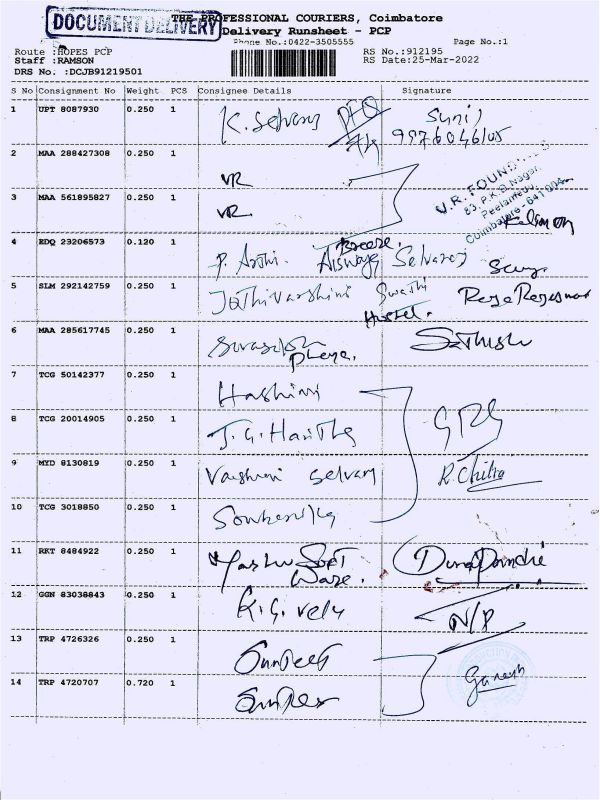 DOCUMENT DELIVERY
THE PROFESSIONAL COURIERS, Coimbatore
Delivery Runsheet - PCP
Phone No.:0422-3505555 Page No.:1
Route :HOPES PCP RS No.:912195
Staff :RAMSON RS Date:25-Mar-2022
DRS No. :DCJB91219501
S No Consignment No Weight PCS Consignee Details Signature
1 UPT 8087930 0.250 1 K. Selvaraj
2 MAA 288427308 0.250 1 VR
V.R. FOUN
83, P.K.D. Nagar,
Peelamedu,
Coimbatore - 641 004
3 MAA 561895827 0.250 1 VR
4 EDQ 23206573 0.120 1 P. Arthi. Breeze. Selvaraj
5 SLM 292142759 0.250 1 Swathi
Hostel.
6 MAA 285617745 0.250 1 Sathish
7 TCG 50142377 0.250 1 Hashini
8 TCG 20014905 0.250 1 J. G. Haritha
9 MYD 8130819 0.250 1 Selvaraj R. Chitra
10 TCG 3018850 0.250 1
11 RKT 8484922 0.250 1 Soft
Ware.
12 GGN 83038843 0.250 1 K. G. velu N/P
13 TRP 4726326 0.250 1
14 TRP 4720707 0.720 1 Ganesh